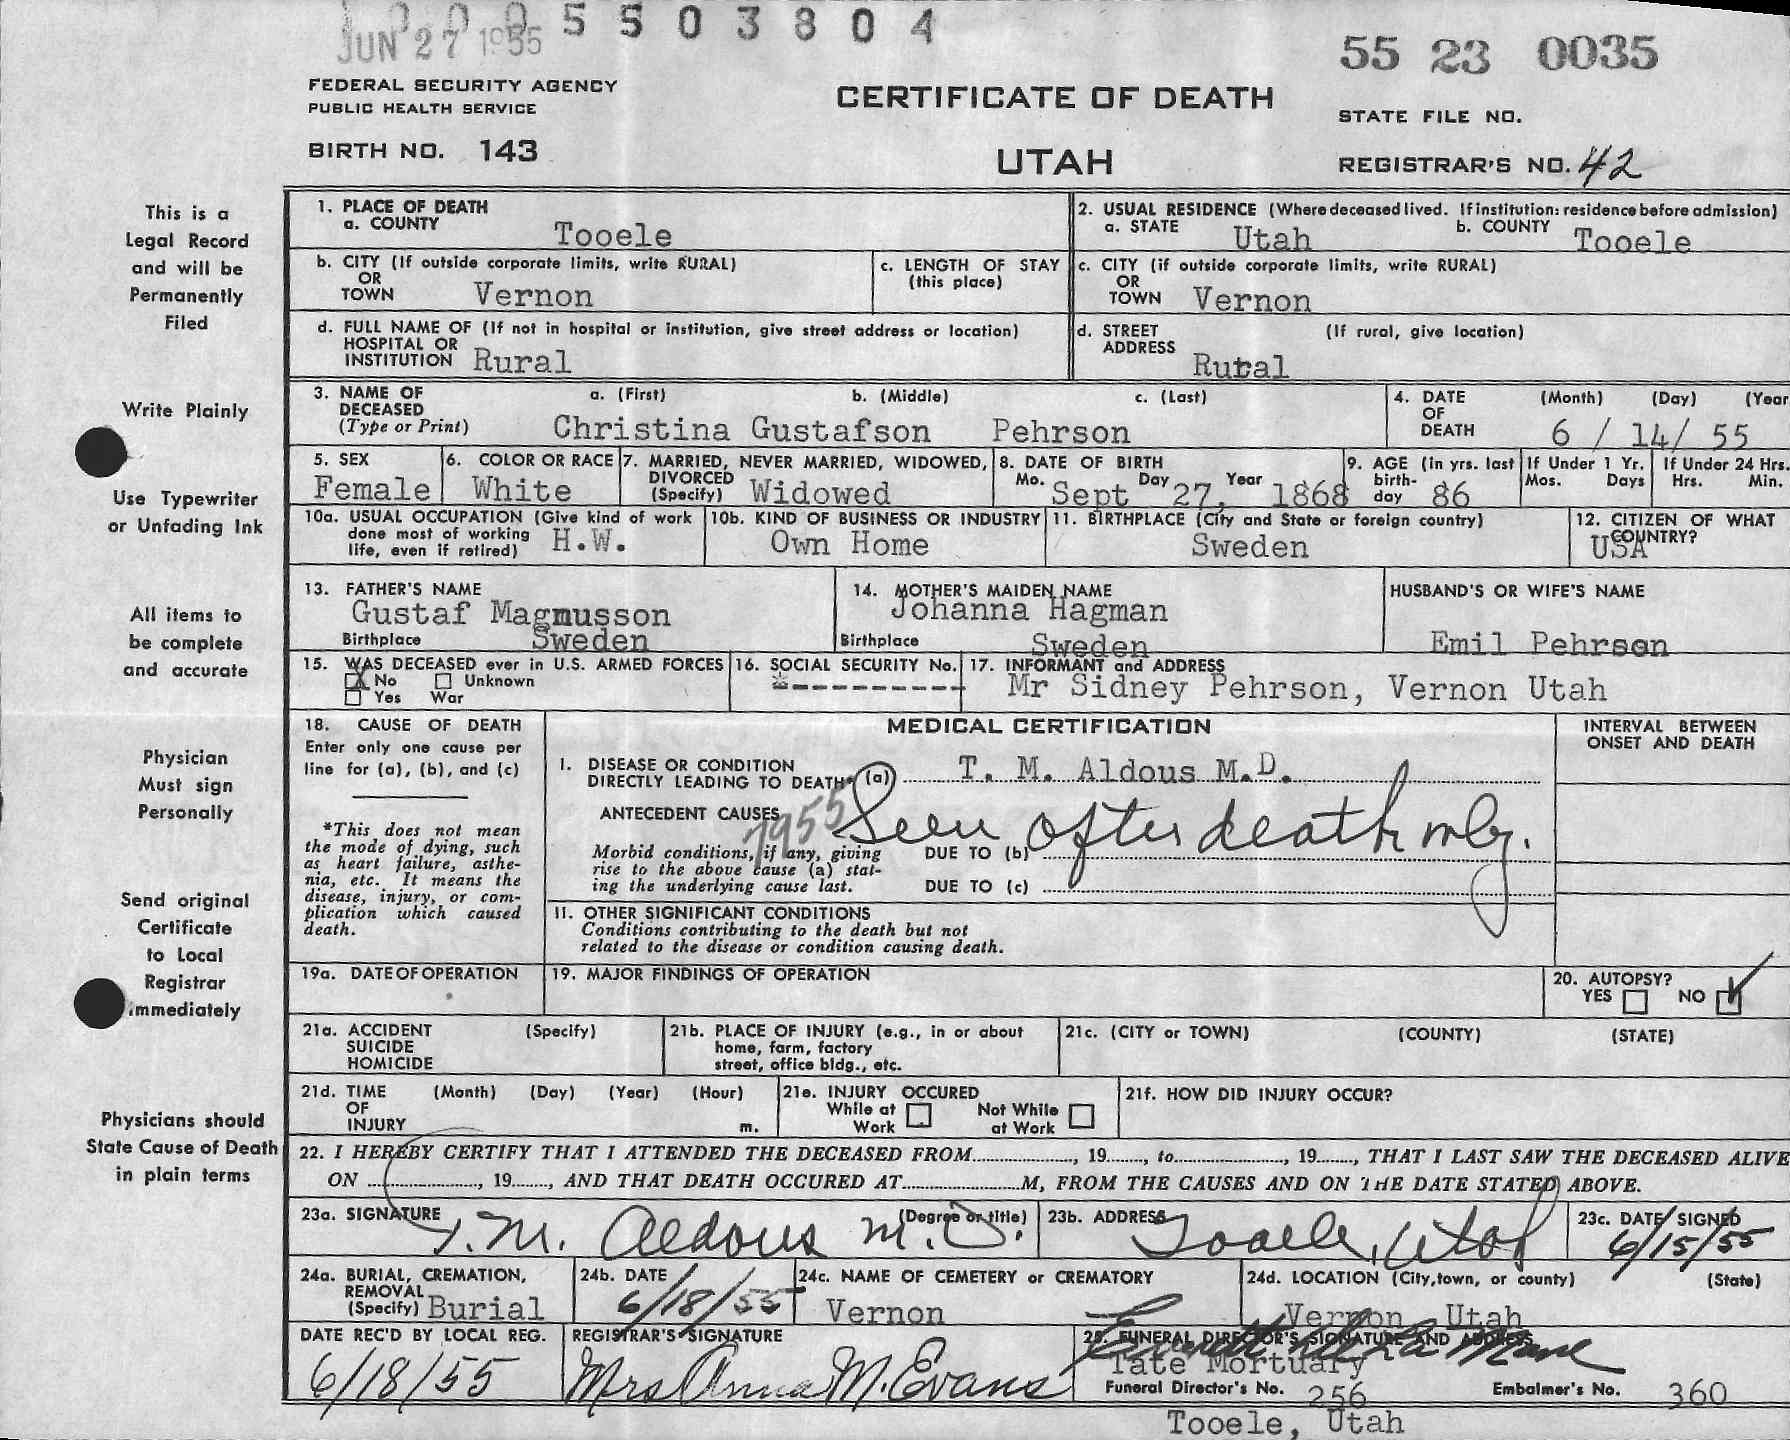 0 0 0 5 5 0 3 8 0 4
JUN 27 1955
55 23 0035
FEDERAL SECURITY AGENCY
PUBLIC HEALTH SERVICE
CERTIFICATE OF DEATH
STATE FILE NO.
BIRTH NO. 143
UTAH
REGISTRAR'S NO. 42
This is a
Legal Record
and will be
Permanently
Filed
Write Plainly
Use Typewriter
or Unfading Ink
All items to
be complete
and accurate
Physician
Must sign
Personally
Send original
Certificate
to Local
Registrar
immediately
Physicians should
State Cause of Death
in plain terms
1. PLACE OF DEATH
a. COUNTY Tooele
2. USUAL RESIDENCE (Where deceased lived. If institution: residence before admission)
a. STATE Utah b. COUNTY Tooele
b. CITY (If outside corporate limits, write RURAL)
OR
TOWN Vernon
c. LENGTH OF STAY
(this place)
c. CITY (if outside corporate limits, write RURAL)
OR
TOWN Vernon
d. FULL NAME OF (If not in hospital or institution, give street address or location)
HOSPITAL OR
INSTITUTION Rural
d. STREET (If rural, give location)
ADDRESS
Rural
3. NAME OF a. (First) b. (Middle) c. (Last)
DECEASED
(Type or Print) Christina Gustafson Pehrson
4. DATE (Month) (Day) (Year
OF
DEATH 6 / 14/ 55
5. SEX
Female
6. COLOR OR RACE
White
7. MARRIED, NEVER MARRIED, WIDOWED,
DIVORCED
(Specify) Widowed
8. DATE OF BIRTH
Mo. Sept Day 27, Year 1868
9. AGE (in yrs. last
birth-
day 86
If Under 1 Yr.
Mos. Days
If Under 24 Hrs.
Hrs. Min.
10a. USUAL OCCUPATION (Give kind of work
done most of working
life, even if retired) H.W.
10b. KIND OF BUSINESS OR INDUSTRY
Own Home
11. BIRTHPLACE (City and State or foreign country)
Sweden
12. CITIZEN OF WHAT
COUNTRY?
USA
13. FATHER'S NAME
Gustaf Magnusson
Birthplace Sweden
14. MOTHER'S MAIDEN NAME
Johanna Hagman
Birthplace Sweden
HUSBAND'S OR WIFE'S NAME
Emil Pehrson
15. WAS DECEASED ever in U.S. ARMED FORCES
X No Unknown
Yes War
16. SOCIAL SECURITY No.
----------
17. INFORMANT and ADDRESS
Mr Sidney Pehrson, Vernon Utah
18. CAUSE OF DEATH
Enter only one cause per
line for (a), (b), and (c)
*This does not mean
the mode of dying, such
as heart failure, asthe-
nia, etc. It means the
disease, injury, or com-
plication which caused
death.
MEDICAL CERTIFICATION
INTERVAL BETWEEN
ONSET AND DEATH
I. DISEASE OR CONDITION
DIRECTLY LEADING TO DEATH* (a) T. M. Aldous M.D.
ANTECEDENT CAUSES
7955
Seen after death only.
Morbid conditions, if any, giving
rise to the above cause (a) stat-
ing the underlying cause last.
DUE TO (b)
DUE TO (c)
II. OTHER SIGNIFICANT CONDITIONS
Conditions contributing to the death but not
related to the disease or condition causing death.
19a. DATE OF OPERATION
19. MAJOR FINDINGS OF OPERATION
20. AUTOPSY?
YES NO ✓
21a. ACCIDENT (Specify)
SUICIDE
HOMICIDE
21b. PLACE OF INJURY (e.g., in or about
home, farm, factory
street, office bldg., etc.
21c. (CITY or TOWN) (COUNTY) (STATE)
21d. TIME (Month) (Day) (Year) (Hour)
OF
INJURY m.
21e. INJURY OCCURED
While at Work Not While at Work
21f. HOW DID INJURY OCCUR?
22. I HEREBY CERTIFY THAT I ATTENDED THE DECEASED FROM........, 19......, to........, 19......, THAT I LAST SAW THE DECEASED ALIVE
ON ........, 19......, AND THAT DEATH OCCURED AT........M, FROM THE CAUSES AND ON THE DATE STATED ABOVE.
23a. SIGNATURE (Degree or title)
T. M. Aldous M.D.
23b. ADDRESS
Tooele, Utah
23c. DATE SIGNED
6/15/55
24a. BURIAL, CREMATION,
REMOVAL
(Specify) Burial
24b. DATE
6/18/55
24c. NAME OF CEMETERY or CREMATORY
Vernon
24d. LOCATION (City, town, or county) (State)
Vernon Utah
DATE REC'D BY LOCAL REG.
6/18/55
REGISTRAR'S SIGNATURE
Mrs Anna M. Evans
25. FUNERAL DIRECTOR'S SIGNATURE AND ADDRESS
Tate Mortuary
Funeral Director's No. 256 Embalmer's No. 360
Tooele, Utah